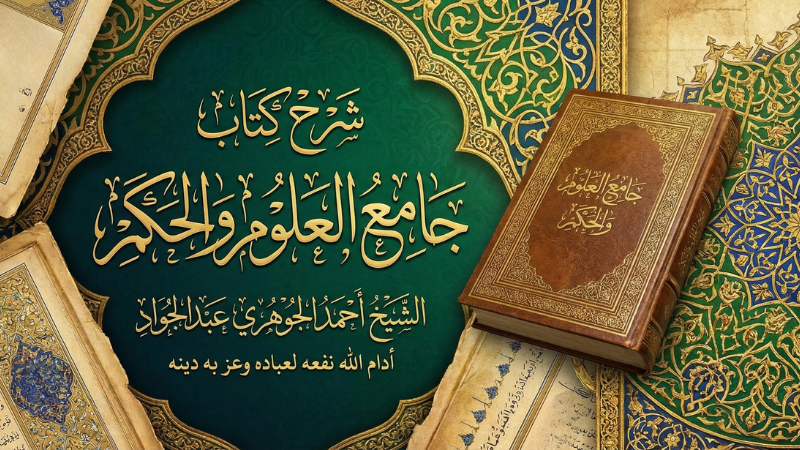 شَرْحُ كِتَابِ
جَامِعُ الْعُلُومِ وَالْحِكَمِ
الشَّيْخُ أَحْمَدُ الْجَوْهَرِي عَبْدُ الْجَوَادِ
أدام الله نفعه لعباده وعز به دينه
جامع العلوم
والحكم